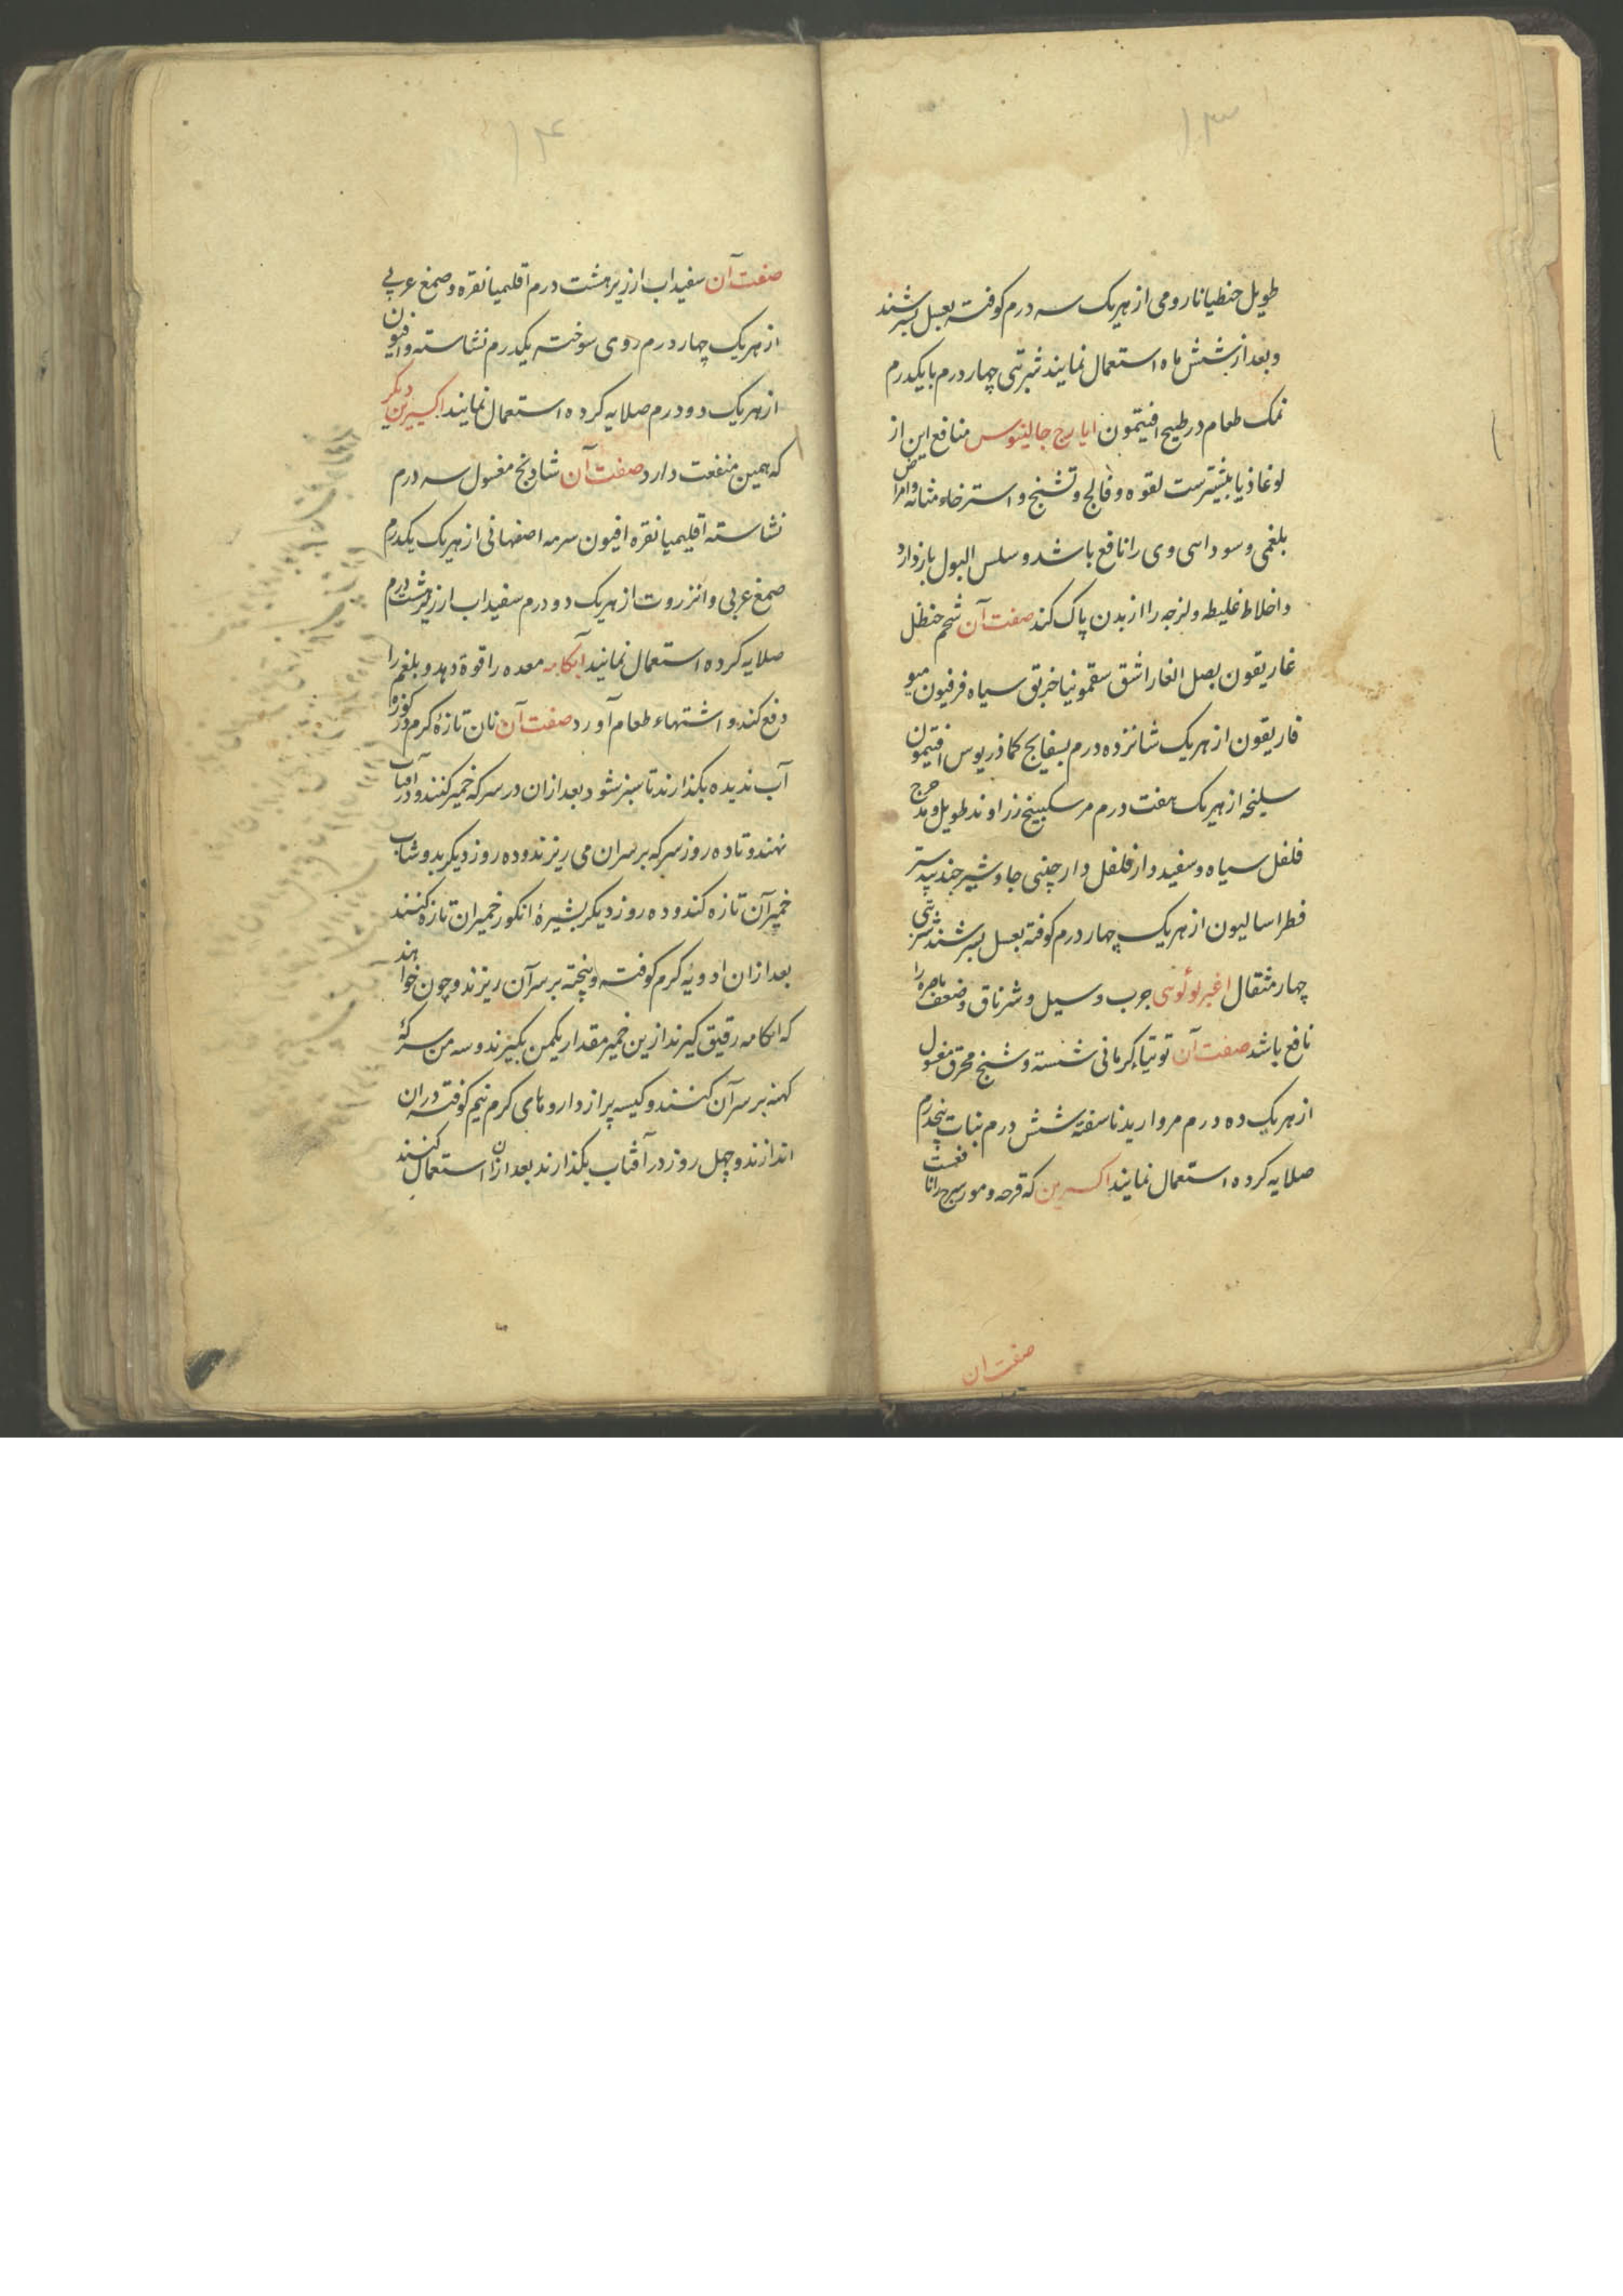 ۱۳
طویل جنطیانا رومی از هریک سه درم کوفته بعسل بسرشند
و بعد از شش ماه استعمال نمایند شربتی چهار درم با یکدرم
نمک طعام در طبیخ افتیمون ایارج جالینوس منافع این از
لوغاذیا بیشترست لقوه و فالج و تشنج و استرخاء مثانه و امراض
بلغمی و سوداسی وی را نافع باشد و سلس البول بازدارد
و اخلاط غلیظه و لزجه را از بدن پاک کند صفت آن شحم حنظل
غاریقون بصل الغار اشق سقمونیا خربق سیاه فرفیون هیو
فاریقون از هریک شانزده درم بسفایج کماذریوس افتیمون
سلیخه از هریک هفت درم مر سکبینج زراوند طویل و مدحرج
فلفل سیاه و سفید دار فلفل دارچینی جاوشیر جندبیدستر
فطراسالیون از هریک چهار درم کوفته بعسل بسرشند شربتی
چهار مثقال اغبر لولوئی جرب و سیل و شرناق و ضعف باصره را
نافع باشد صفت آن توتیاء کرمانی شسته و شنج محرق مغسول
از هریک ده درم مروارید ناسفته شش درم نبات پنجدرم
صلایه کرده استعمال نمایند اکسیرین که قرحه و مورسرج را نافعست
صفت ان
۱۴
صفت آن سفیداب ارزیز هشت درم اقلیمیا نقره و صمغ عربی
از هریک چهار درم روی سوخته یکدرم نشاسته و افیون
از هریک دو درم صلایه کرده استعمال نمایند اکسیرین دیکر
که همین منفعت دارد صفت آن شادنج مغسول سه درم
نشاسته اقلیمیا نقره افیون سرمه اصفهانی از هریک یکدرم
صمغ عربی و انزروت از هریک دو درم سفیداب ارزیز هشت درم
صلایه کرده استعمال نمایند آبکامه معده را قوة دهد و بلغم را
دفع کند و اشتهاء طعام آورد صفت آن نان تازه کرم در کوزه
آب ندیده بکذارند تا سبز شود بعد از ان در سرکه خمیر کنند و در آفتاب
نهند و تا ده روز سرکه بر سر ان می ریزند و ده روز دیکر بدوشاب
خمیر آن تازه کند و ده روز دیکر بشیرهٔ انکور خمیر ان تازه کنند
بعد از ان ادویهٔ کرم کوفته و پخته بر سر آن ریزند و چون خواهند
که ابکامه رقیق کیرند ازین خمیر مقدار یکمن بکیرند و سه من سرکهٔ
کهنه بر سر آن کنند و کیسه پر از داروهای کرم نیم کوفته در ان
اندازند و چهل روز در آفتاب بکذارند بعد از ان استعمال کنند